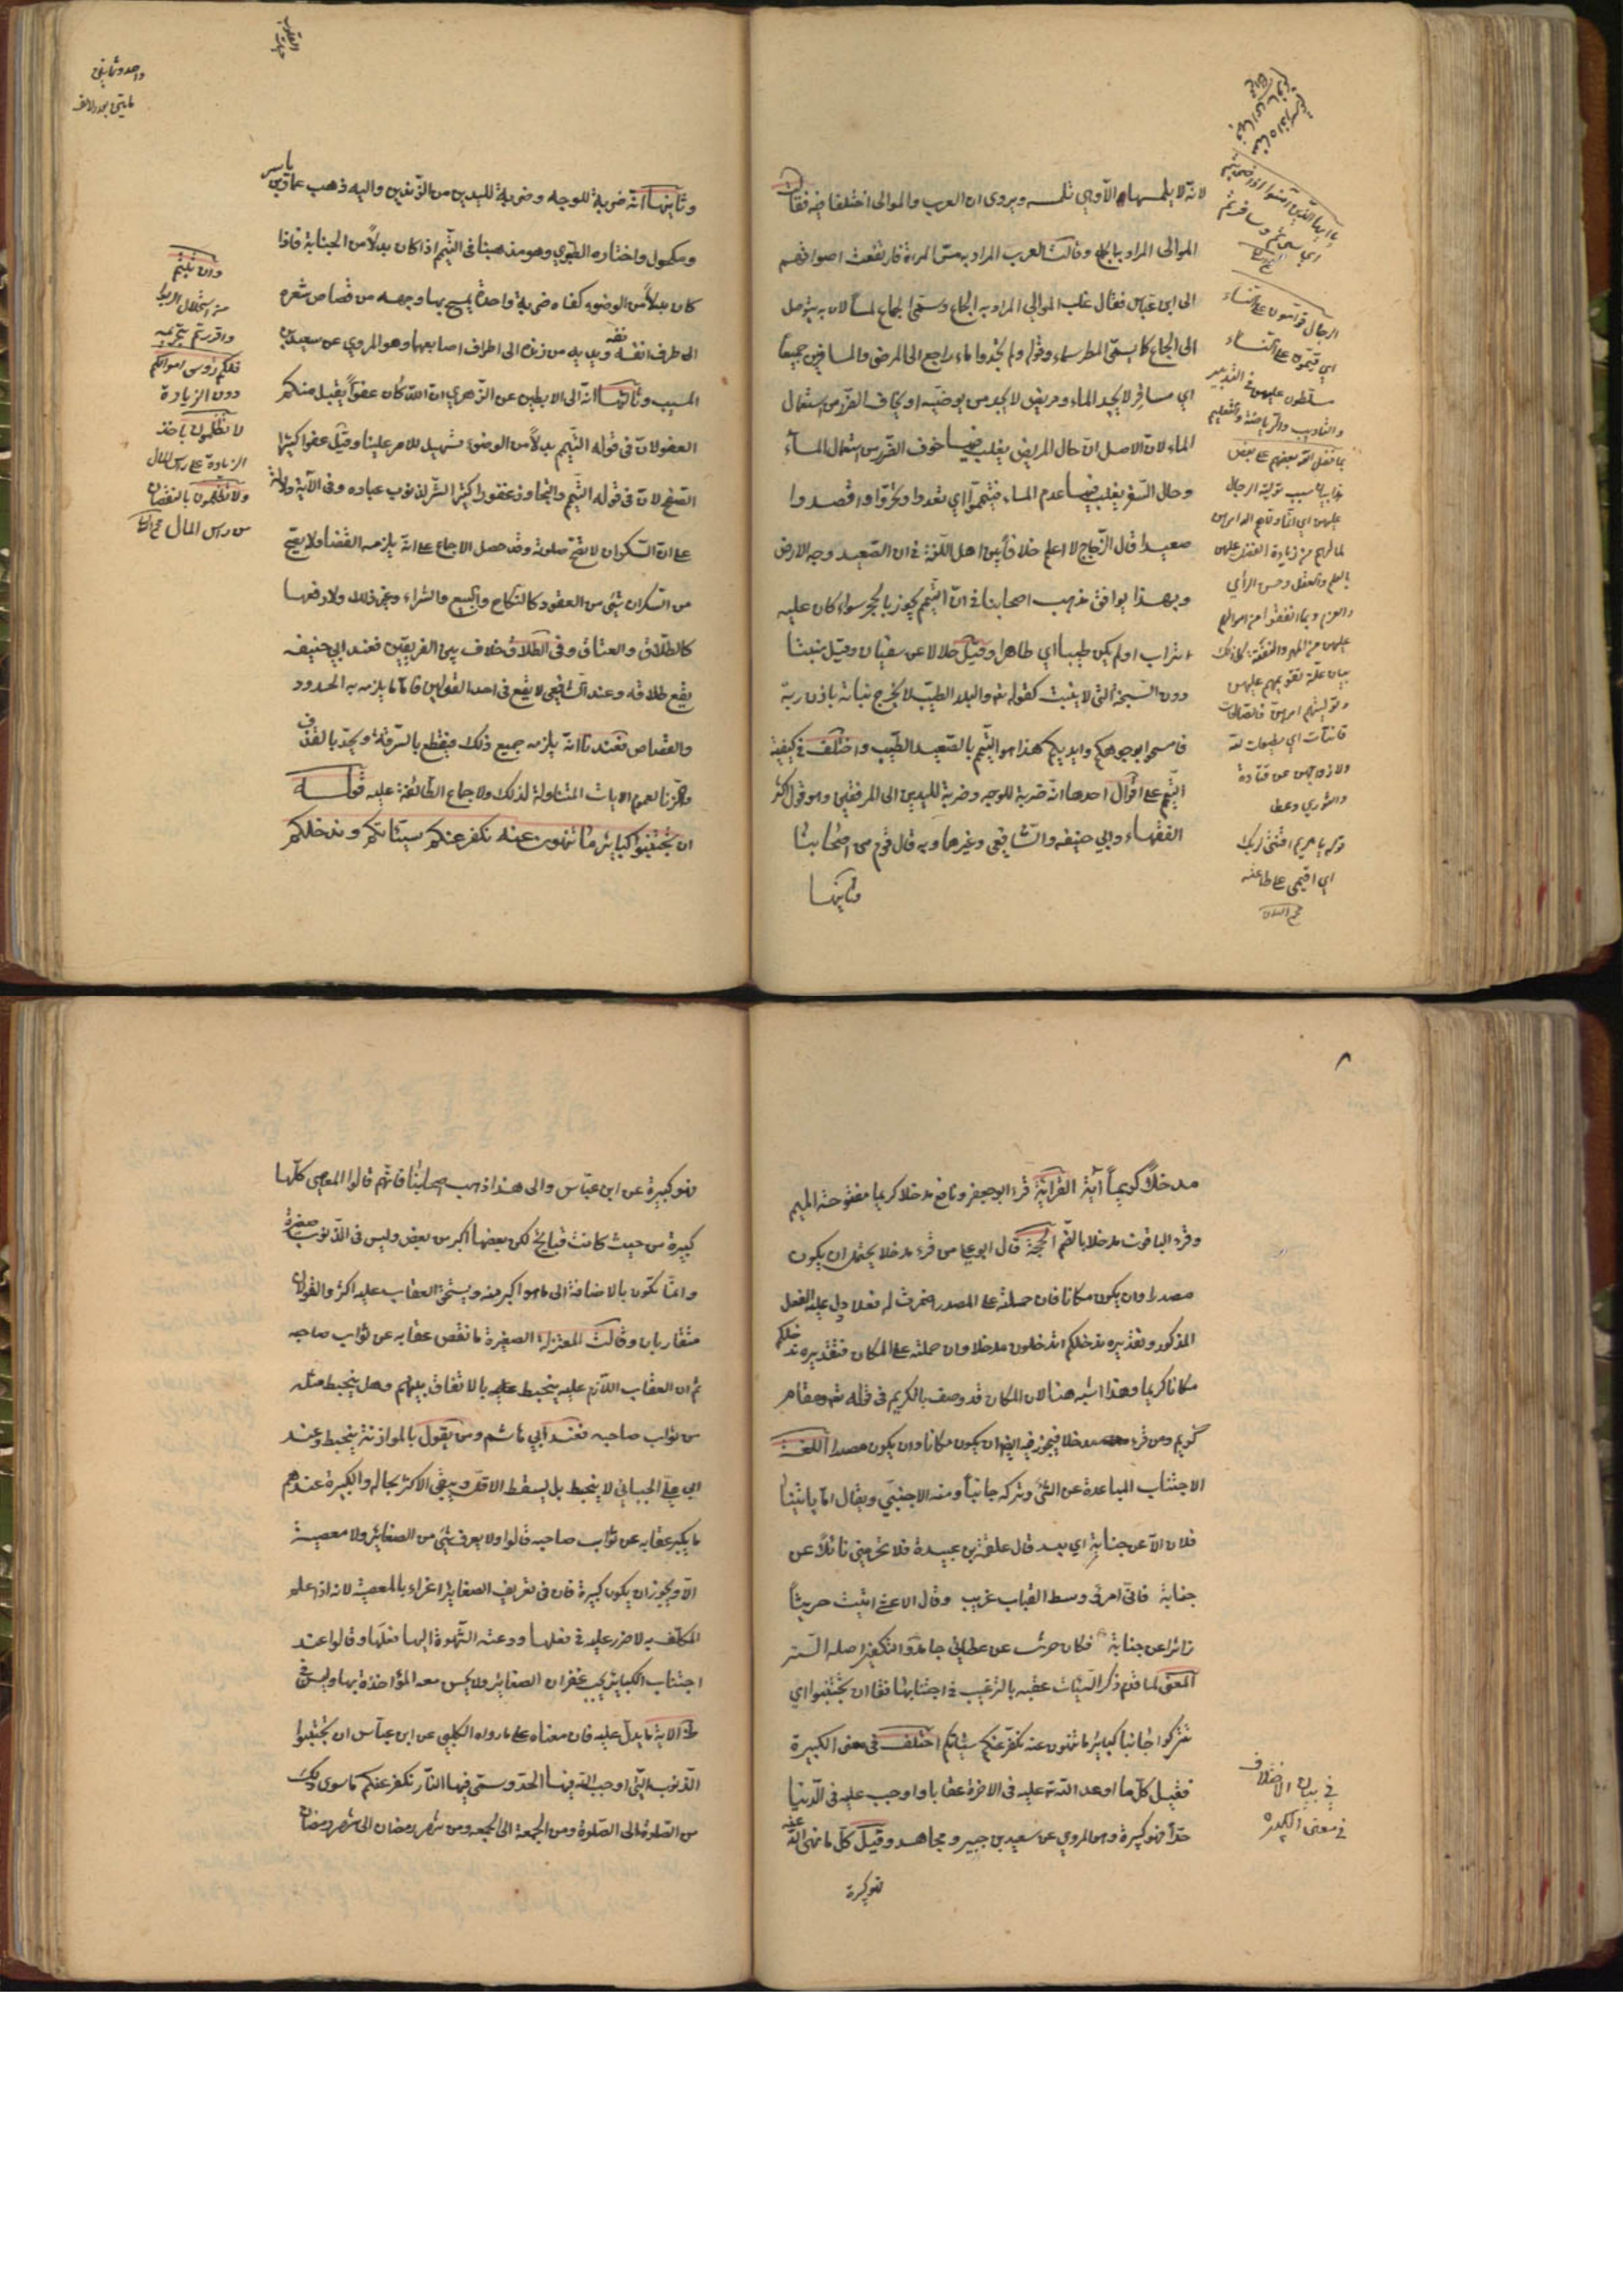 لانّه لا يلمسها الّا وهي تلمسه ويروى ان العرب والموالى اختلفا فيه فقالت
الموالى المراد به الجماع وقالت العرب المراد به مسّ المراة فارتفعت اصواتهم
الى ابن عباس فقال غلب الموالي المراد به الجماع وسمّى الجماع لمسا لان به يتوصل
الى الجماع كما يسمّى المطر سماء وقوله ولم تجدوا ماء راجع الى المرضى والمسافرين جميعا
اي مسافر لا يجد الماء ومريض لا يجد من يوضيه او يخاف الضّرر من استعمال
الماء لانّ الاصل انّ حال المريض يغلب فيها خوف الضّرر من استعمال المآء
وحال السّفر يغلب فيها عدم الماء فتيمّموا اي تعمدوا وتحرّوا واقصدوا
صعيدا قال الزّجاج لا اعلم خلافا بين اهل اللّغة في ان الصّعيد وجه الارض
وبهذا يوافق مذهب اصحابنا في انّ التيّمم يجوز بالحجر سواء كان عليه
تراب اولم يكن طيبا اي طاهرا وقيل حلالا عن سفيان وقيل منبتا
دون السّبخة الّتي لا ينبت كقوله تعه والبلد الطيّب لا يخرج نباته باذن ربّه
فامسحوا بوجوهكم وايديكم هذا هو التيمّم بالصّعيد الطّيب واختلف في كيفيّة
التيّمم على اقوال احدها انّه ضربة للوجه وضربة لليدين الى المرفقين وهو قول اكثر
الفقهاء وابي حنيفه والشّافعي وغيرهما وبه قال قوم من اصحابنا
وثانيها
يا ايها الّذين امنوا اذا ضربتم
اي سرتم وسافرتم
الرجال قوامون على النساء
اي قيّمون على النساء
مسلّطون عليهن في التدبير
والتاديب والرياضة والتعليم
بما فضل الله بعضهم على بعض
هذا بيان سبب تولية الرجال
عليهن اي انّما ولّاهم الله امرهن
لما لهم من زيادة الفضل عليهن
بالعلم والعقل وحسن الرأي
والعزم وبما انفقوا من اموالهم
عليهن من المهر والنفقة كل ذلك
بيان علّة تقويمهم عليهن
وتوليتهم امرهنّ فالصالحات
قانتات اي مطيعات لله
ولازواجهن عن قتادة
والثوري وعطا
قوله يا مريم اقنتي لربك
اي اقيمي على طاعته
مجمع البيان
وثانيها انّه ضربة للوجه وضربة لليدين من الزّندين واليه ذهب عمار بن ياسر
ومكحول واختاره الطّبري وهو مذهبنا في التيّمم اذا كان بدلاً من الجنابة فاذا
كان بدلاً من الوضوء كفاه ضربة واحدة يمسح بها وجهه من قصاص شعره
الى طرف انفه ويديه من زنده الى اطراف اصابعهما وهو المروي عن سعيد بن
المسيب وثالثها انّه الى الابطين عن الزّهري انّ الله كان عفوّاً يقبل منكم
العفو لانّ في قوله التيّمم بدلاً من الوضوء تسهيل للامر علينا وقيل عفوا كثير
الصّفح لانّ في قوله التيّمم والتجاوز غفورا كثير السّتر لذنوب عباده وفي الآية دلالة
على انّ السّكران لا تصّح صلوته وقد حصل الاجماع على انّه يلزمه القضا ولا يصحّ
من السّكران شئ من العقود كالنّكاح والبيع والشراء وغير ذلك ولا رفعها
كالطّلاق والعتاق وفي الطّلاق خلاف بين الفريقين فعند ابي حنيفه
يقع طلاقه وعند الشّافعي لا يقع في احد القولين فامّا ما يلزمه به الحدود
والقصاص فعندنا انّه يلزمه جميع ذلك فيقطع بالسّرقة ويحدّ بالقذف
والزنا لعموم الايات المتناولة لذلك ولاجماع الطّائفة عليه قوله
ان تجتنبوا كبائر ما تنهون عنه نكفر عنكم سيّئاتكم وندخلكم
وان تبتم
من استحلال الربوا
واقررتم بتحريمه
فلكم رؤس اموالكم
دون الزيادة
لا تظلمون باخذ
الزيادة على راس المال
ولا تظلمون بالنقصان
من راس المال مجمع البيان
۸
مدخلاً كريماً آية القرائة قرء ابوجعفر ونافع مدخلا كريما مفتوحة الميم
وقرء الباقون مدخلا بالضّم الحجّة قال ابوعلي من قرء مدخلا يحتمل ان يكون
مصدرا وان يكون مكانا فان حملته على المصدر اضمرت له فعلا دل عليه الفعل
المذكور وتقديره ندخلكم فتدخلون مدخلا وان حملته على المكان فتقديره ندخلكم
مكانا كريما وهذا اشبه هنا لان المكان قد وصف بالكريم في قوله تعه ومقام
كريم ومن قرء مدخلا فيجوز فيه ايضا ان يكون مكانا وان يكون مصدرا اللغة
الاجتناب المباعدة عن الشئ وتركه جانباً ومنه الاجنبيّ ويقال ما ياتينا
فلان الّا عن جنابةٍ اي بعد قال علقمة بن عبيدة فلا تحرمنّي نائلاً عن
جنابة فانّي امرؤ وسط القباب غريب وقال الاعشى اتيت حريثاً
زائرا عن جنابة فكان حريث عن عطائي جامدا والتكفير اصله السّتر
المعنى لما قدم ذكر السّيئات عقبه بالترغيب في اجتنابها فقال ان تجتنبوا اي
تتركوا جانبا كبائر ما تنهون عنه نكفّر عنكم سيئاتكم اختلف في معنى الكبيرة
فقيل كلّ ما اوعد الله تعه عليه في الاخرة عقابا واوجب عليه في الدّنيا
حدّاً فهو كبيرة وهو المروي عن سعيد بن جبير ومجاهد وقيل كلّ ما نهى الله عنه
فهو كبيرة
في بيان الاختلاف
في معنى الكبيرة
فهو كبيرة عن ابن عبّاس والى هذا ذهب اصحابنا فانّهم قالوا المعاصي كلّها
كبيرة من حيث كانت قبايح لكن بعضها اكبر من بعض وليس في الذّنوب صغيرة
وانّما تكون بالاضافة الى ما هو اكبر منه ويستحق العقاب عليه اكثر والقولان
متقاربان وقالت المعتزلة الصغيرة ما نقص عقابه عن ثواب صاحبه
ثم ان العقاب اللّازم عليه ينحبط عليه بالاتفاق بينهم وهل ينحبط مثله
من ثواب صاحبه فعند ابي هاشم ومن يقول بالموازنة ينحبط وعند
ابي علي الجبائي لا ينحبط بل يسقط الاقل ويبقى الاكثر بحاله والكبيرة عندهم
ما يكبر عقابه عن ثواب صاحبه قالوا ولا يعرف شئ من الصغائر ولا معصية
الّا ويجوز ان يكون كبيرة فان في تعريف الصغاير اغراء بالمعصية لانه اذا علم
المكلّف به لا ضرر عليه في فعلها ودعته الشّهوة اليها فعلها وقالوا عند
اجتناب الكبائر يجب غفران الصغاير ولا يحسن معه المؤاخذة بها وليس في
ظاهر الاية ما يدلّ عليه فان معناه على ما رواه الكلبي عن ابن عبّاس ان تجتنبوا
الذّنوب الّتي اوجب الله فيها الحدّ وسمّى فيها النّار نكفر عنكم ما سوى ذلك
من الصّلوة الى الصّلوة ومن الجمعة الى الجمعه ومن شهر رمضان الى شهر رمضان